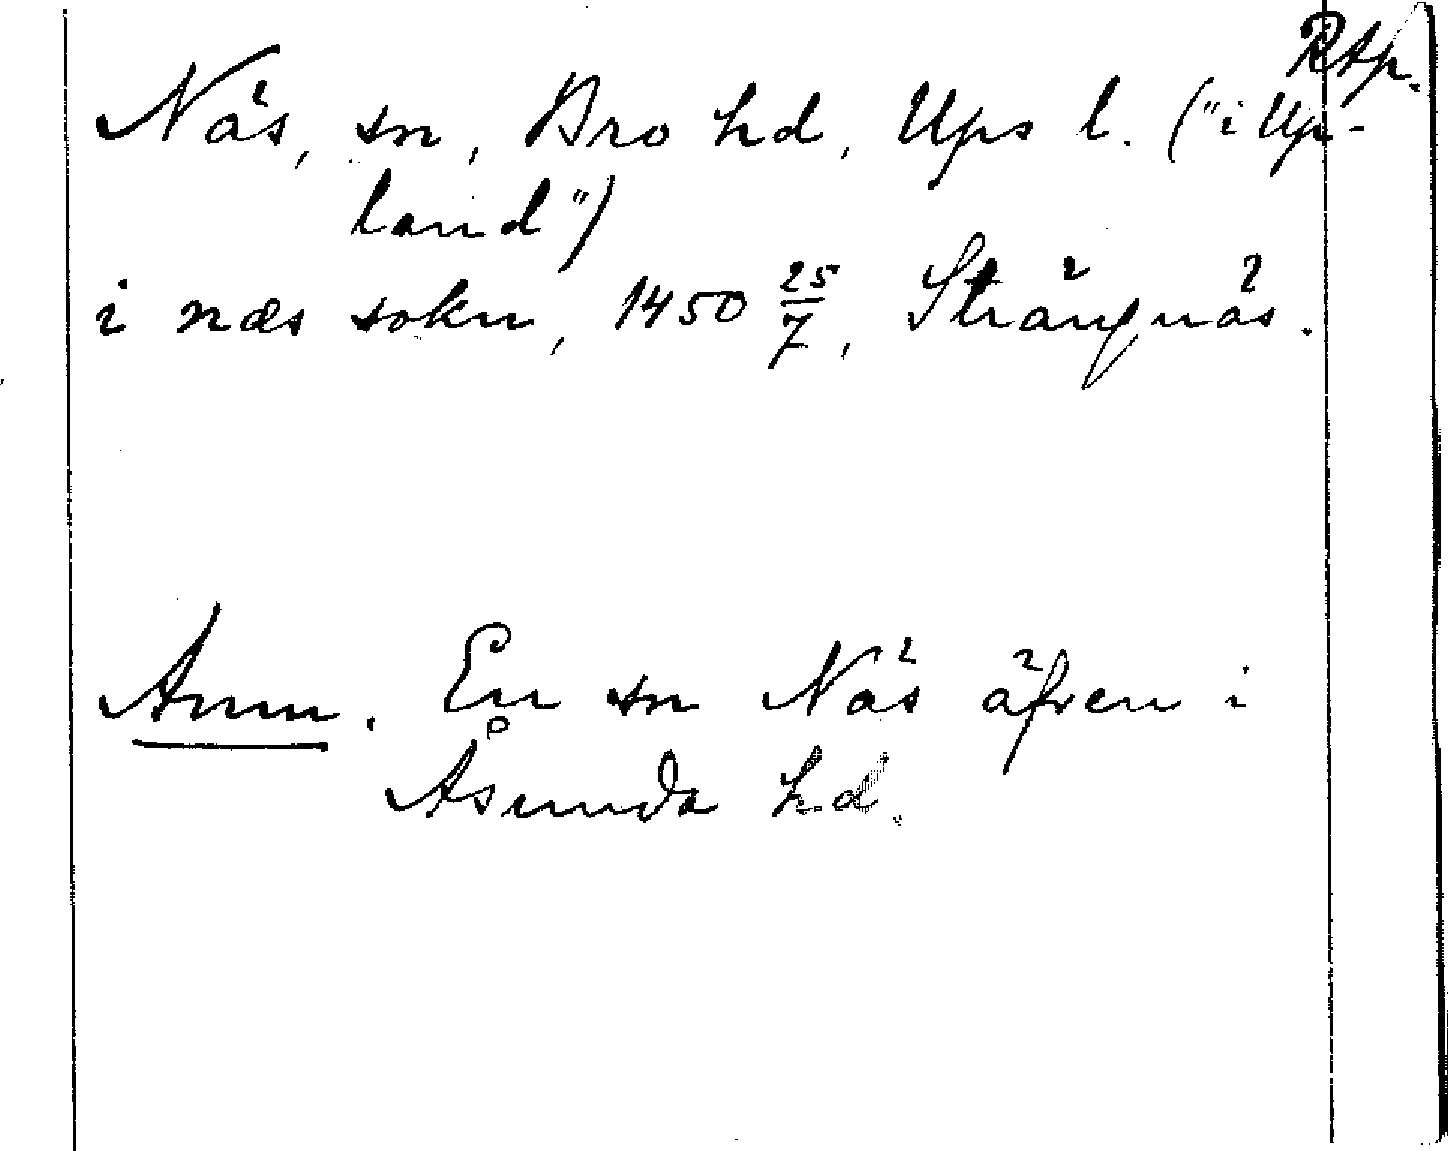 RAp.
Näs, sn, Bro hd, Ups l. ("i Up-
land")
i næs sokn, 1450 25/7, Strängnäs.
Anm. En sn Näs äfven i
Åsunda hd.